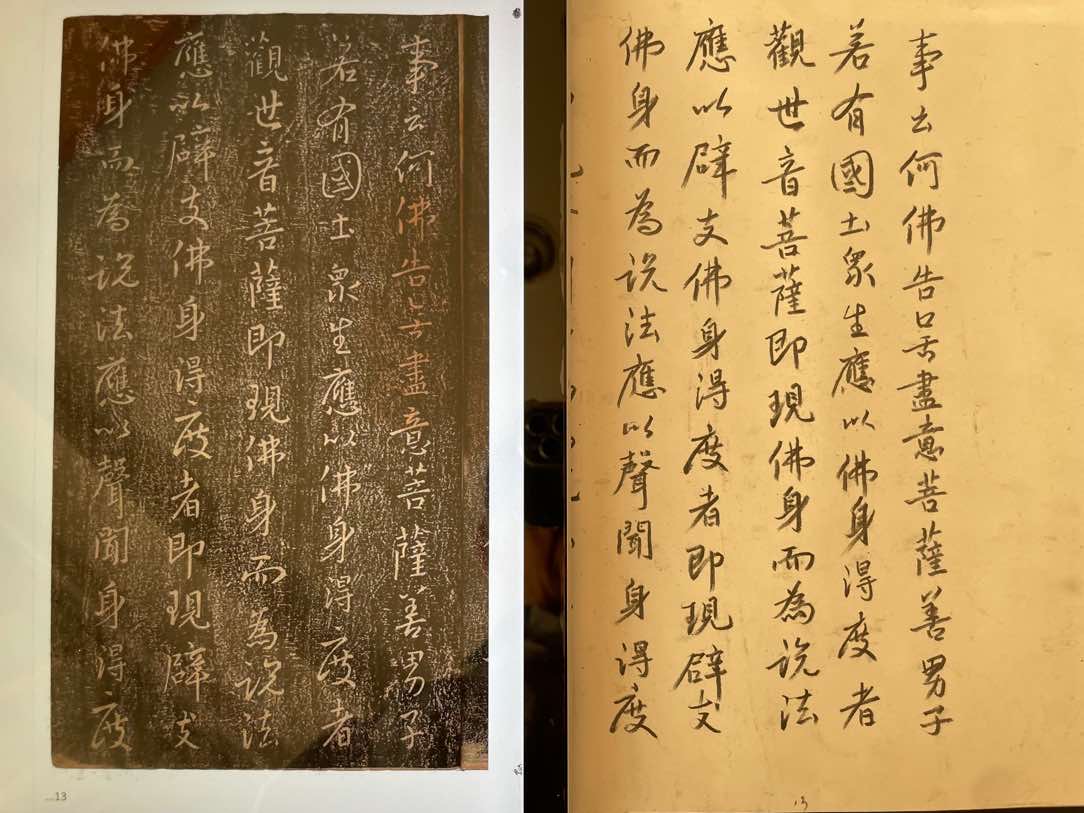 事云何佛告無盡意菩薩善男子
若有國土眾生應以佛身得度者
觀世音菩薩即現佛身而為說法
應以辟支佛身得度者即現辟支
佛身而為說法應以聲聞身得度
13
事云何佛告無盡意菩薩善男子
若有國土眾生應以佛身得度者
觀世音菩薩即現佛身而為說法
應以辟支佛身得度者即現辟支
佛身而為說法應以聲聞身得度
13